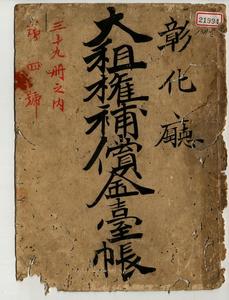 21994
彰化廳
大租權補償金臺帳
三十九冊之內
第四號